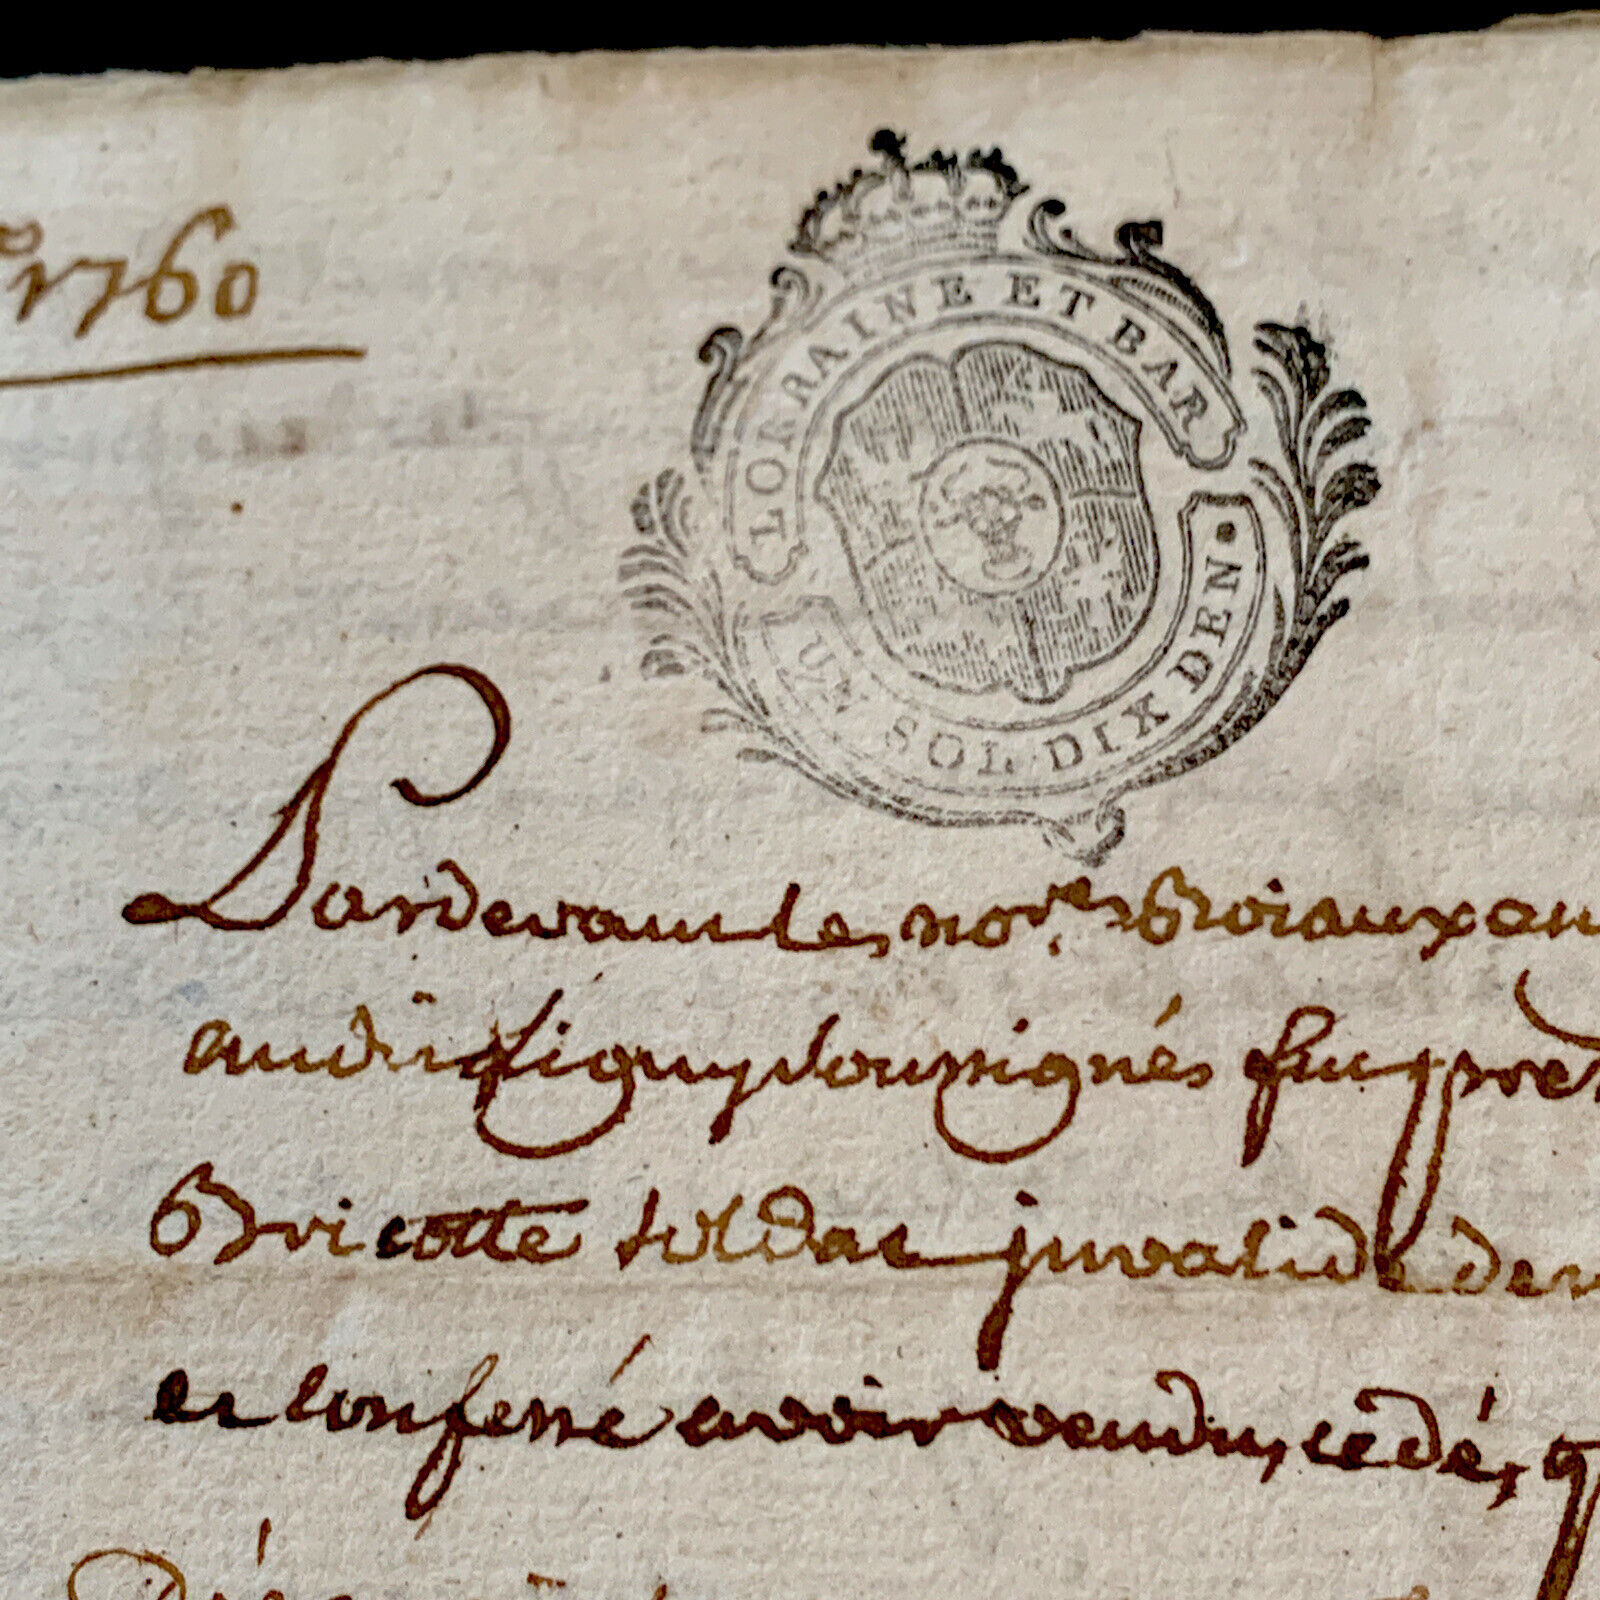 1760
LORRAINE ET BAR
UN SOL DIX DEN.
Pardevant les no.res Roiaux au
audit Ligny soussignés fut pre
Bricotte soldat jnvalide de
et confessé avoir vendu, cedé, q